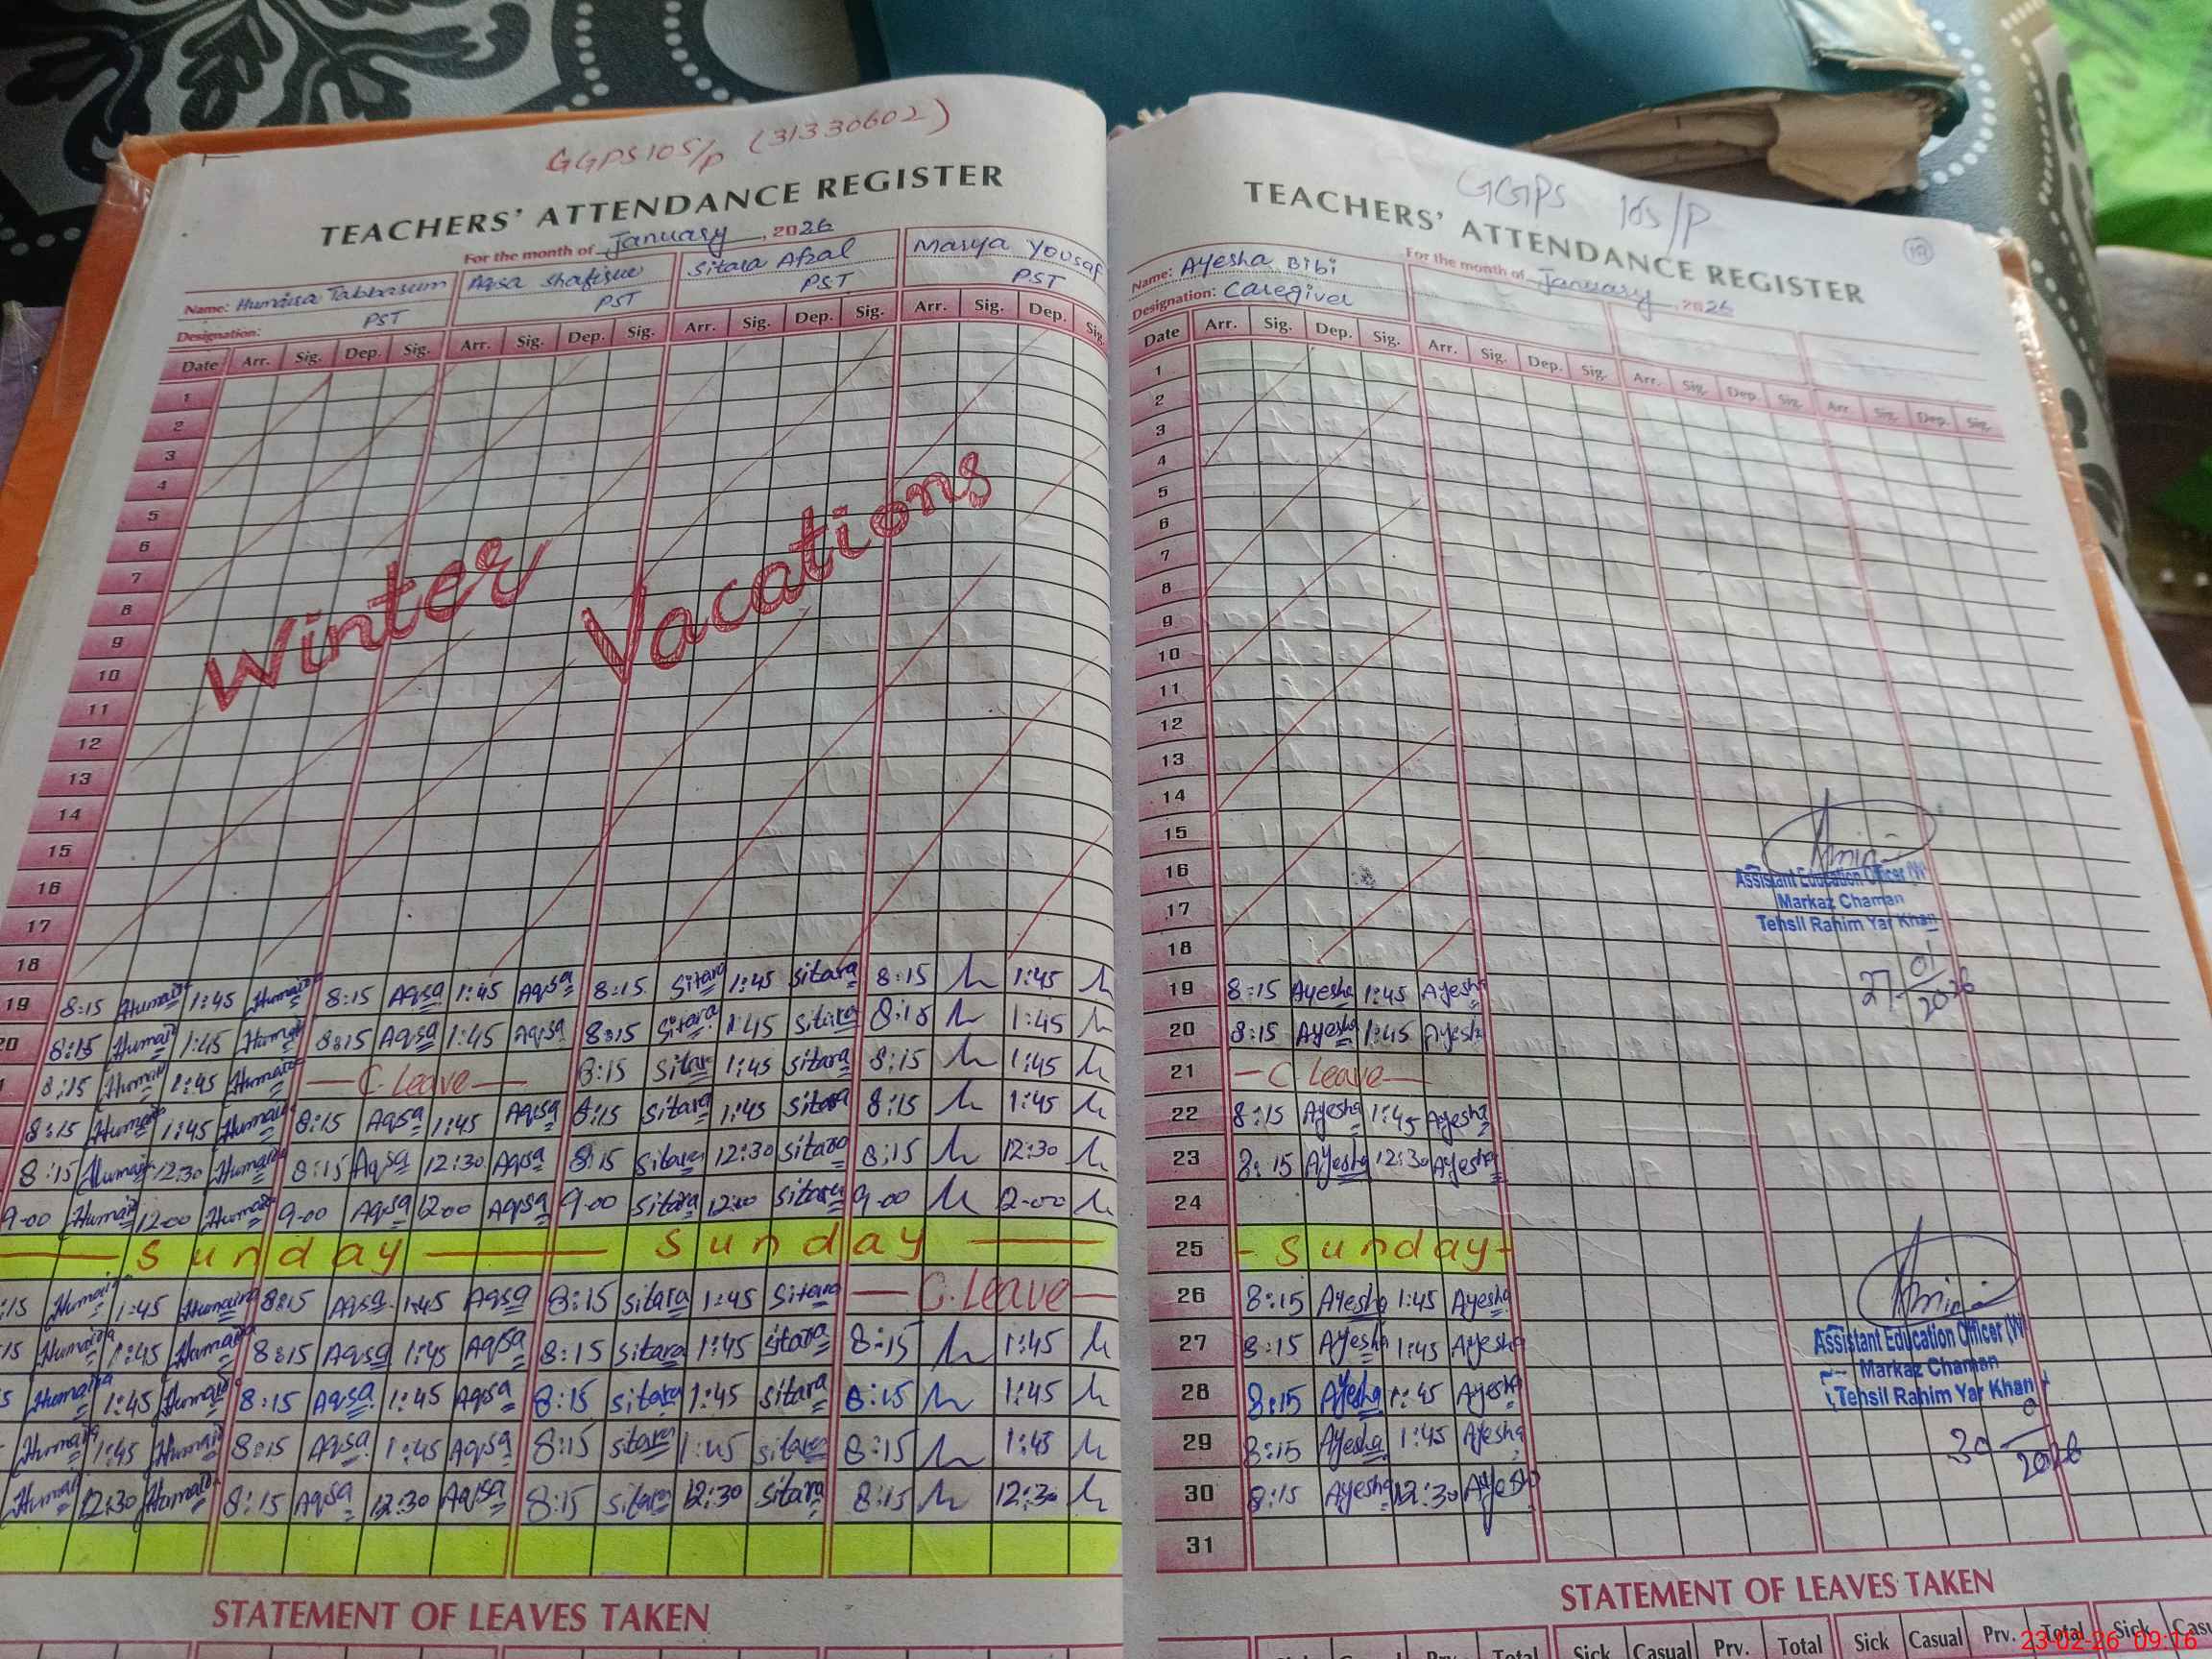 GGPS 105/P (31330602)
TEACHERS' ATTENDANCE REGISTER
For the month of January, 2026
Name: Humaira Tabbasum Aqsa Shafique Sitara Afzal Marya Yousaf
Designation: PST PST PST PST
Date Arr. Sig. Dep. Sig. Arr. Sig. Dep. Sig. Arr. Sig. Dep. Sig. Arr. Sig. Dep. Sig.
1
2
3
4
5
6
7
8
9
10
11
12
13
14
15
16
17
18
Winter Vacations
19 8:15 Humaira 1:45 Humaira 8:15 Aqsa 1:45 Aqsa 8:15 Sitara 1:45 Sitara 8:15 1:45
20 8:15 Humaira 1:45 Humaira 8:15 Aqsa 1:45 Aqsa 8:15 Sitara 1:45 Sitara 8:15 1:45
8:15 Humaira 1:45 Humaira C. Leave 8:15 Sitara 1:45 Sitara 8:15 1:45
8:15 Humaira 1:45 Humaira 8:15 Aqsa 1:45 Aqsa 8:15 Sitara 1:45 Sitara 8:15 1:45
8:15 Humaira 12:30 Humaira 8:15 Aqsa 12:30 Aqsa 8:15 Sitara 12:30 Sitara 8:15 12:30
9-00 Humaira 12-00 Humaira 9-00 Aqsa 12-00 Aqsa 9-00 Sitara 12-00 Sitara 9-00 2-00
Sunday Sunday
:15 Humaira 1:45 Humaira 8:15 Aqsa 1:45 Aqsa 8:15 Sitara 1:45 Sitara C. Leave
:15 Humaira 1:45 Humaira 8:15 Aqsa 1:45 Aqsa 8:15 Sitara 1:45 Sitara 8:15 1:45
5 Humaira 1:45 Humaira 8:15 Aqsa 1:45 Aqsa 8:15 Sitara 1:45 Sitara 8:15 1:45
Humaira 1:45 Humaira 8:15 Aqsa 1:45 Aqsa 8:15 Sitara 1:45 Sitara 8:15 1:45
Humaira 12:30 Humaira 8:15 Aqsa 12:30 Aqsa 8:15 Sitara 12:30 Sitara 8:15 12:30
STATEMENT OF LEAVES TAKEN
GGPS 105/P
TEACHERS' ATTENDANCE REGISTER
For the month of January, 2026
Name: Ayesha Bibi
Designation: Caregiver
Date Arr. Sig. Dep. Sig. Arr. Sig. Dep. Sig. Arr. Sig. Dep. Sig. Arr. Sig. Dep. Sig.
1
2
3
4
5
6
7
8
9
10
11
12
13
14
15
16
17
18
Assistant Education Officer (W)
Markaz Chaman
Tehsil Rahim Yar Khan
27 01 2026
19 8:15 Ayesha 1:45 Ayesha
20 8:15 Ayesha 1:45 Ayesha
21 C Leave
22 8:15 Ayesha 1:45 Ayesha
23 8:15 Ayesha 12:30 Ayesha
24
25 Sunday
26 8:15 Ayesha 1:45 Ayesha
27 8:15 Ayesha 1:45 Ayesha
28 8:15 Ayesha 1:45 Ayesha
29 8:15 Ayesha 1:45 Ayesha
30 8:15 Ayesha 12:30 Ayesha
31
Assistant Education Officer (W)
Markaz Chaman
Tehsil Rahim Yar Khan
30 2026
STATEMENT OF LEAVES TAKEN
Total Sick Casual Prv. Total Sick Casual Prv. Total Sick Cas
23-02-26 09:16